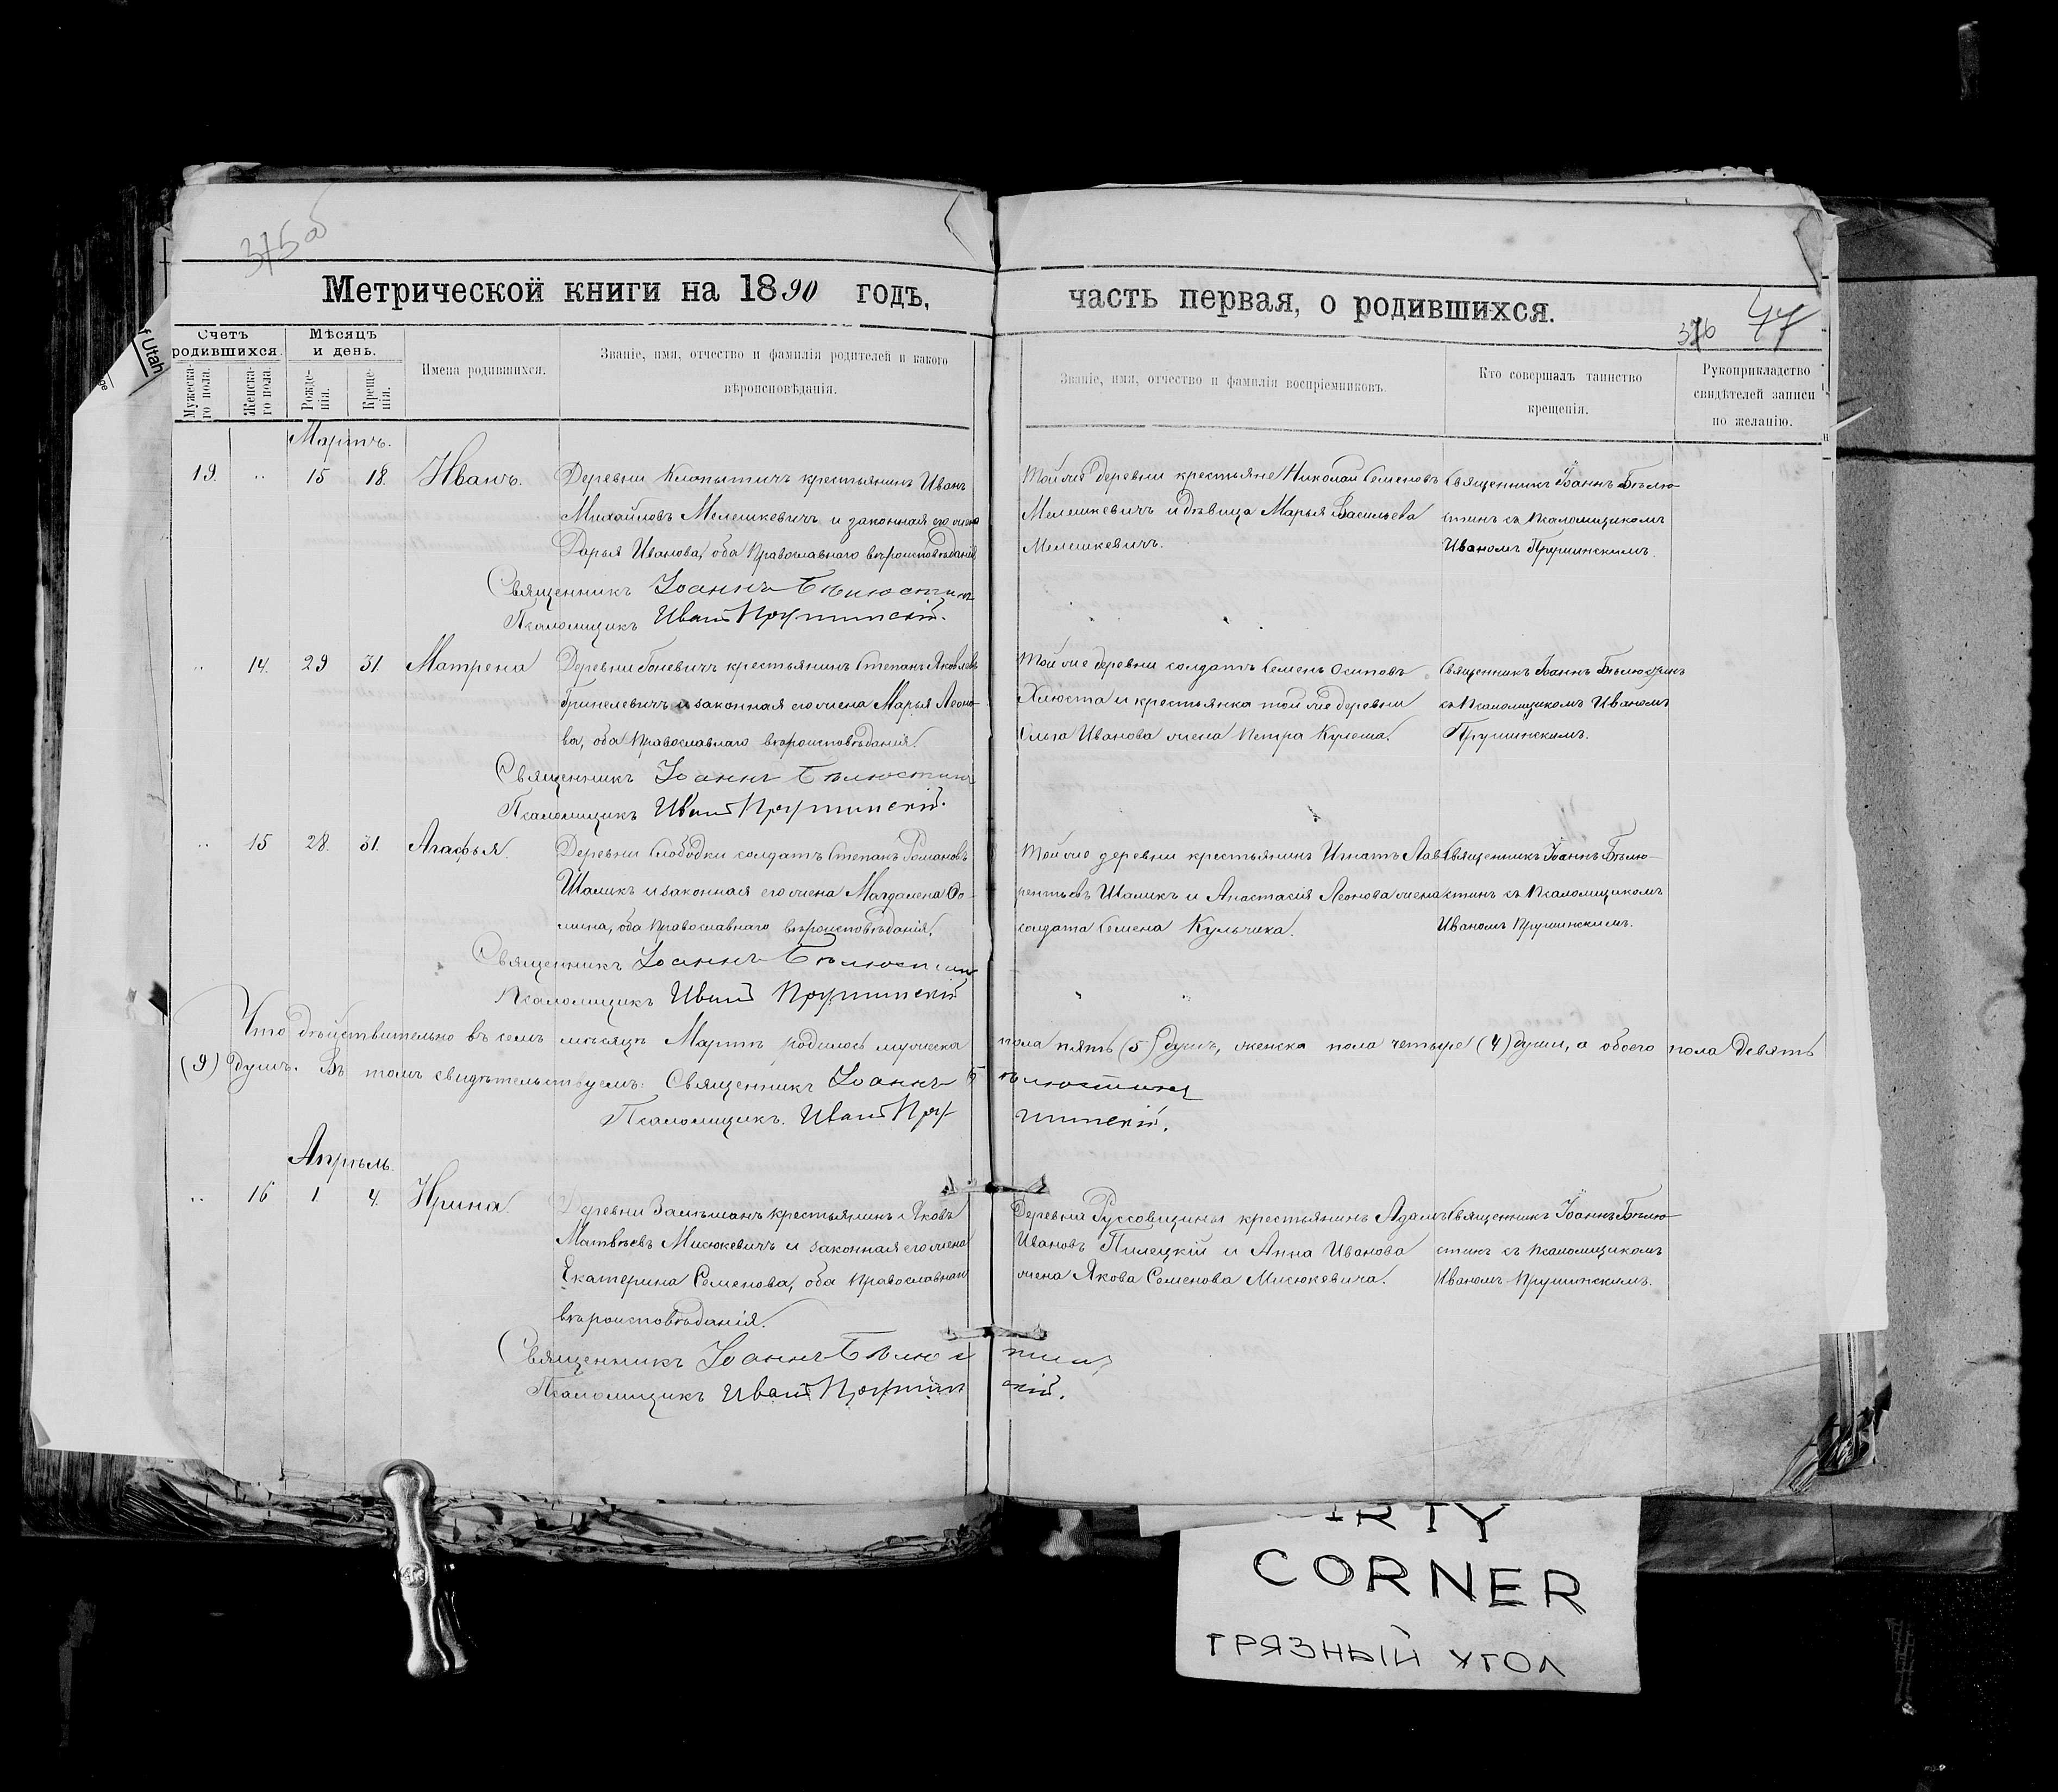 375об
Метрической книги на 1890 годъ,
часть первая, о родившихся.
376
47
f Utah
Счетъ родившихся.
Мѣсяцъ и день.
Мужеска-го пола.
Женска-го пола.
Рожде-нія.
Креще-нія.
Имена родившихся.
Званіе, имя, отчество и фамилія родителей и какого
вѣроисповѣданія.
Званіе, имя, отчество и фамилія воспріемниковъ.
Кто совершалъ таинство
крещенія.
Рукоприкладство
свидѣтелей записи
по желанію.
Мартъ.
19. „ 15 18. Иванъ.
Деревни Клопытичъ крестьянинъ Иванъ
Михайловъ Мелешкевичъ и законная его жена
Дарья Иванова, оба Православнаго вѣроисповѣданія
Той же деревни крестьяне Николай Семеновъ
Мелешкевичъ и дѣвица Марья Васильева
Мелешкевичъ.
Священникъ Іоаннъ Бѣлю-
стинъ съ Псаломщикомъ
Иваномъ Прушинскимъ.
Священникъ Іоаннъ Бѣлюстинъ
Псаломщикъ Иванъ Прушинскій.
„ 14. 29 31 Матрена
Деревни Гоневичъ крестьянинъ Степанъ Яковлевъ
Гринелевичъ и законная его жена Марья Леоно-
ва, оба Православнаго вѣроисповѣданія.
Той же деревни солдатъ Семенъ Осиповъ
Хлюста и крестьянка той же деревни
Ольга Иванова жена Петра Кулеша.
Священникъ Іоаннъ Бѣлюстинъ
съ Псаломщикомъ Иваномъ
Прушинскимъ.
Священникъ Іоаннъ Бѣлюстинъ
Псаломщикъ Иванъ Прушинскій.
„ 15 28. 31. Агафья.
Деревни Слободки солдатъ Степанъ Романовъ
Шаликъ и законная его жена Магдалена Фо-
мина, оба Православнаго вѣроисповѣданія.
Той же деревни крестьянинъ Игнатъ Лав-
рентьевъ Шаликъ и Анастасія Леонова жена
солдата Семена Кульчика.
Священникъ Іоаннъ Бѣлю-
стинъ съ Псаломщикомъ
Иваномъ Прушинскимъ.
Священникъ Іоаннъ Бѣлюстинъ
Псаломщикъ Иванъ Прушинскій
Что дѣйствительно въ семъ мѣсяцѣ Мартѣ родилось мужеска пола пять (5) душъ, женска пола четыре (4) души, а обоего пола девять
(9) душъ. Въ томъ свидѣтельствуемъ: Священникъ Іоаннъ Бѣлюстинъ
Псаломщикъ. Иванъ Прушинскій.
Апрѣль.
„ 16 1 4. Ирина.
Деревни Замѣшанъ крестьянинъ Яковъ
Матвѣевъ Мисюкевичъ и законная его жена
Екатерина Семенова, оба Православнаго
вѣроисповѣданія.
Деревни Руссовщины крестьянинъ Адамъ
Ивановъ Пилецкій и Анна Иванова
жена Якова Семенова Мисюкевича.
Священникъ Іоаннъ Бѣлю-
стинъ съ Псаломщикомъ
Иваномъ Прушинскимъ.
Священникъ Іоаннъ Бѣлюстинъ
Псаломщикъ Иванъ Прушинскій.
IRTY
CORNER
ГРЯЗНЫЙ УГОЛ